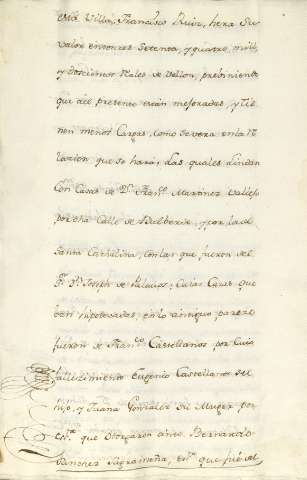 esta Villa, Francisco Ruiz, hera Su
valor entonces Setenta, y quatro, mill,
y doscientos Reales de Vellon, previniendo
que al presente estan mejoradas, y tie
nen menos Cargas, como Severa en la R
lacion que se hará; Las quales lindan
Con Casas de Dn. Franco. Martinez Vallejo
por dha Calle de y por la de
Santa Cathalina, con las que fueron del
Pe. Dn. Joseph de Palacios; Cuias Casas que
ban hipotecadas, en lo antiguo parece
fueron de Franco. Castellanos, por Cuio
fallecimiento Eugenio Castellanos Su
hijo, y Juana Gonzalez Su Muger por
Esra. que otorgaron ante Bernardo
Sanchez Sagrameña, Esno. que fué del